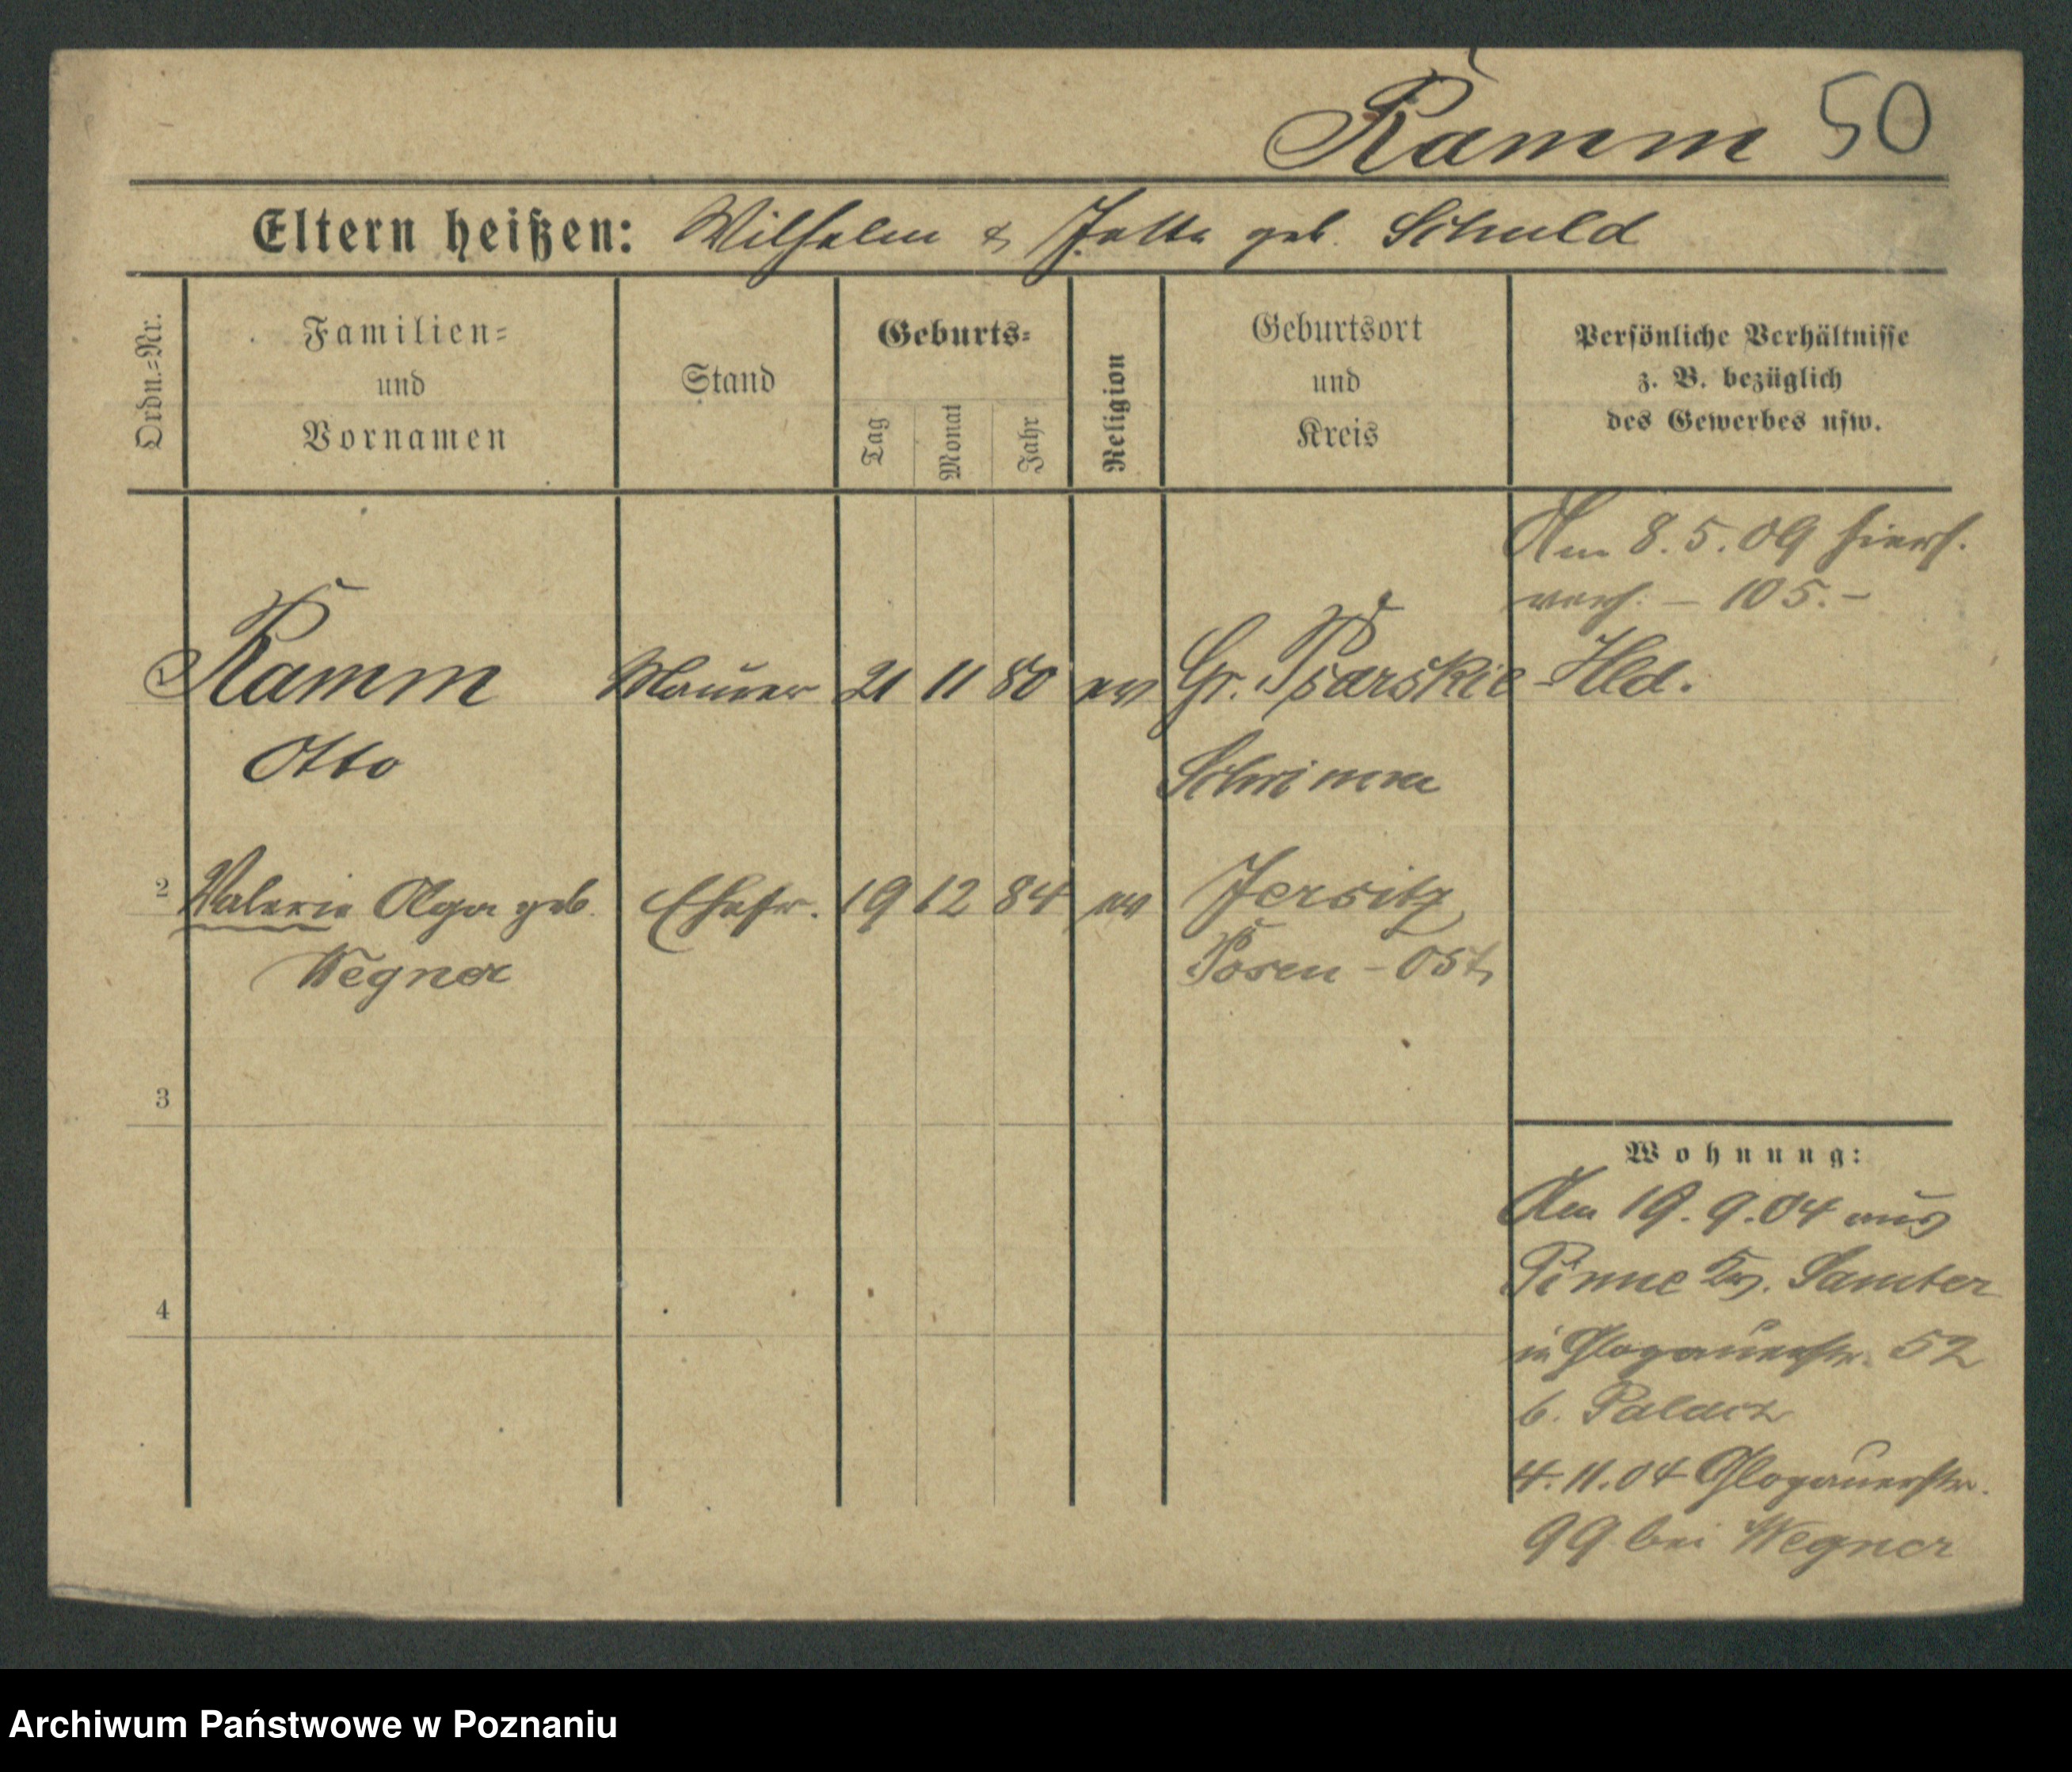 Ramm 50
Eltern heißen: Wilhelm & Jette geb. Schuld
Ordn.=Nr.
Familien=
und
Vornamen
Stand
Geburts=
Tag
Monat
Jahr
Religion
Geburtsort
und
Kreis
Persönliche Verhältnisse
z. B. bezüglich
des Gewerbes usw.
Am 8.5.09 hiers.
verh. – 105.–
Ramm Maurer 21 11 80 ev Gr. Psarskie-Hld.
Otto Schrimm
2 Valerie Olga geb. Ehefr. 19 12 84 ev Jersitz
Wegner Posen-Ost
3
4
Wohnung:
Am 19.9.04 aus
Pinne Kr. Samter
in Glogauerstr. 52
b. Palacz
4.11.04 Glogauerstr.
99 bei Wegner
Archiwum Państwowe w Poznaniu